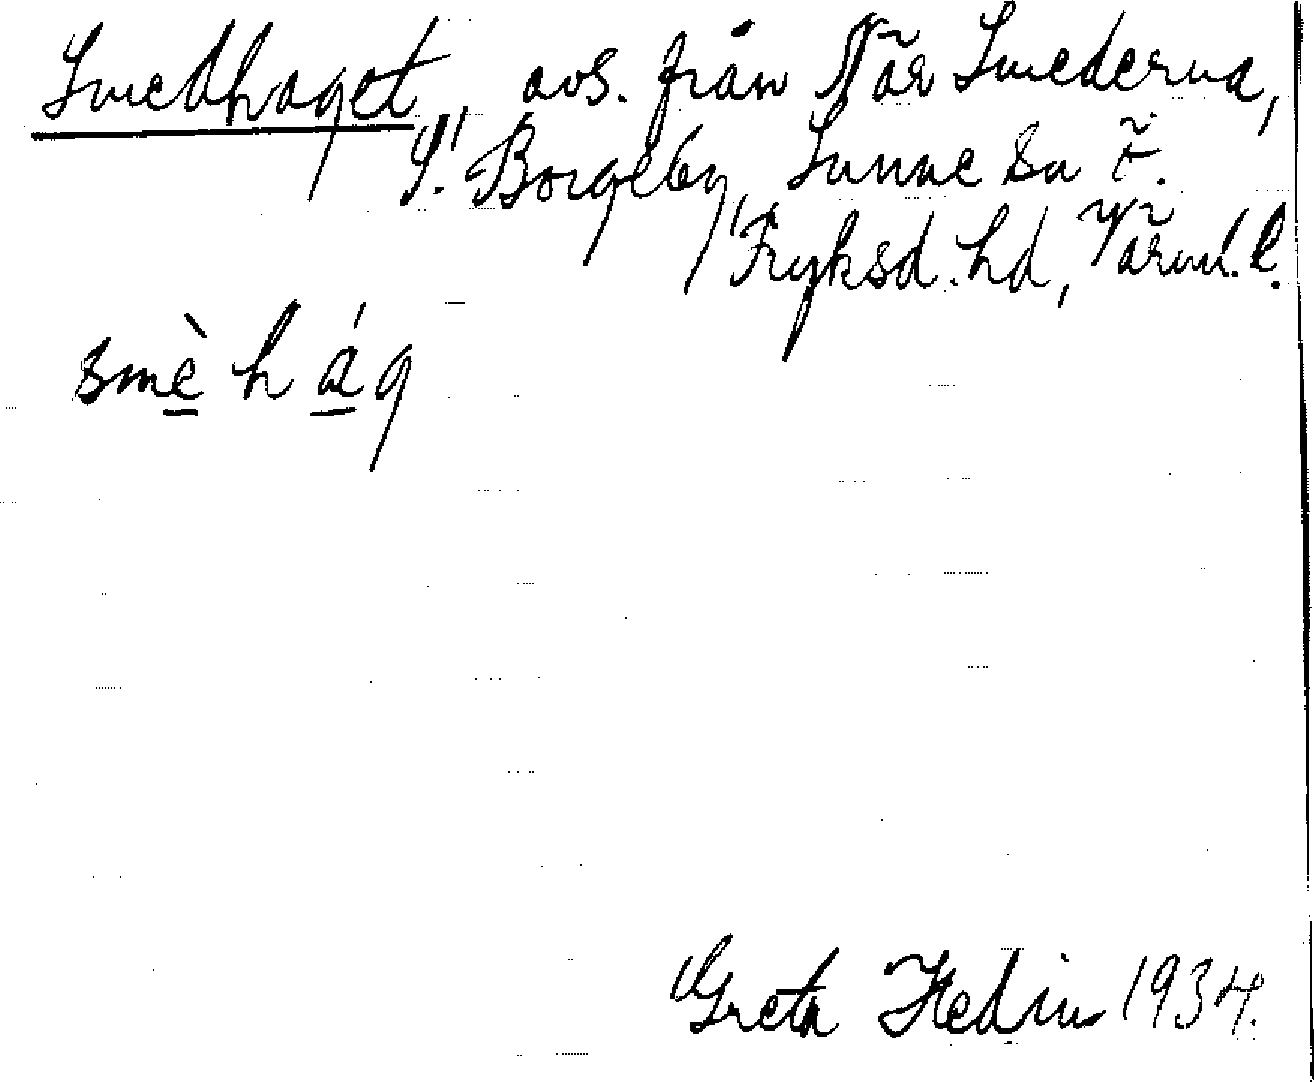 Smedhaget, avs. från När Smederna,
S. Borgeby, Sunne sn ö.
Fryksd. hd, Värml. l.
smè̱ há̱g
Greta Hedin 1934.